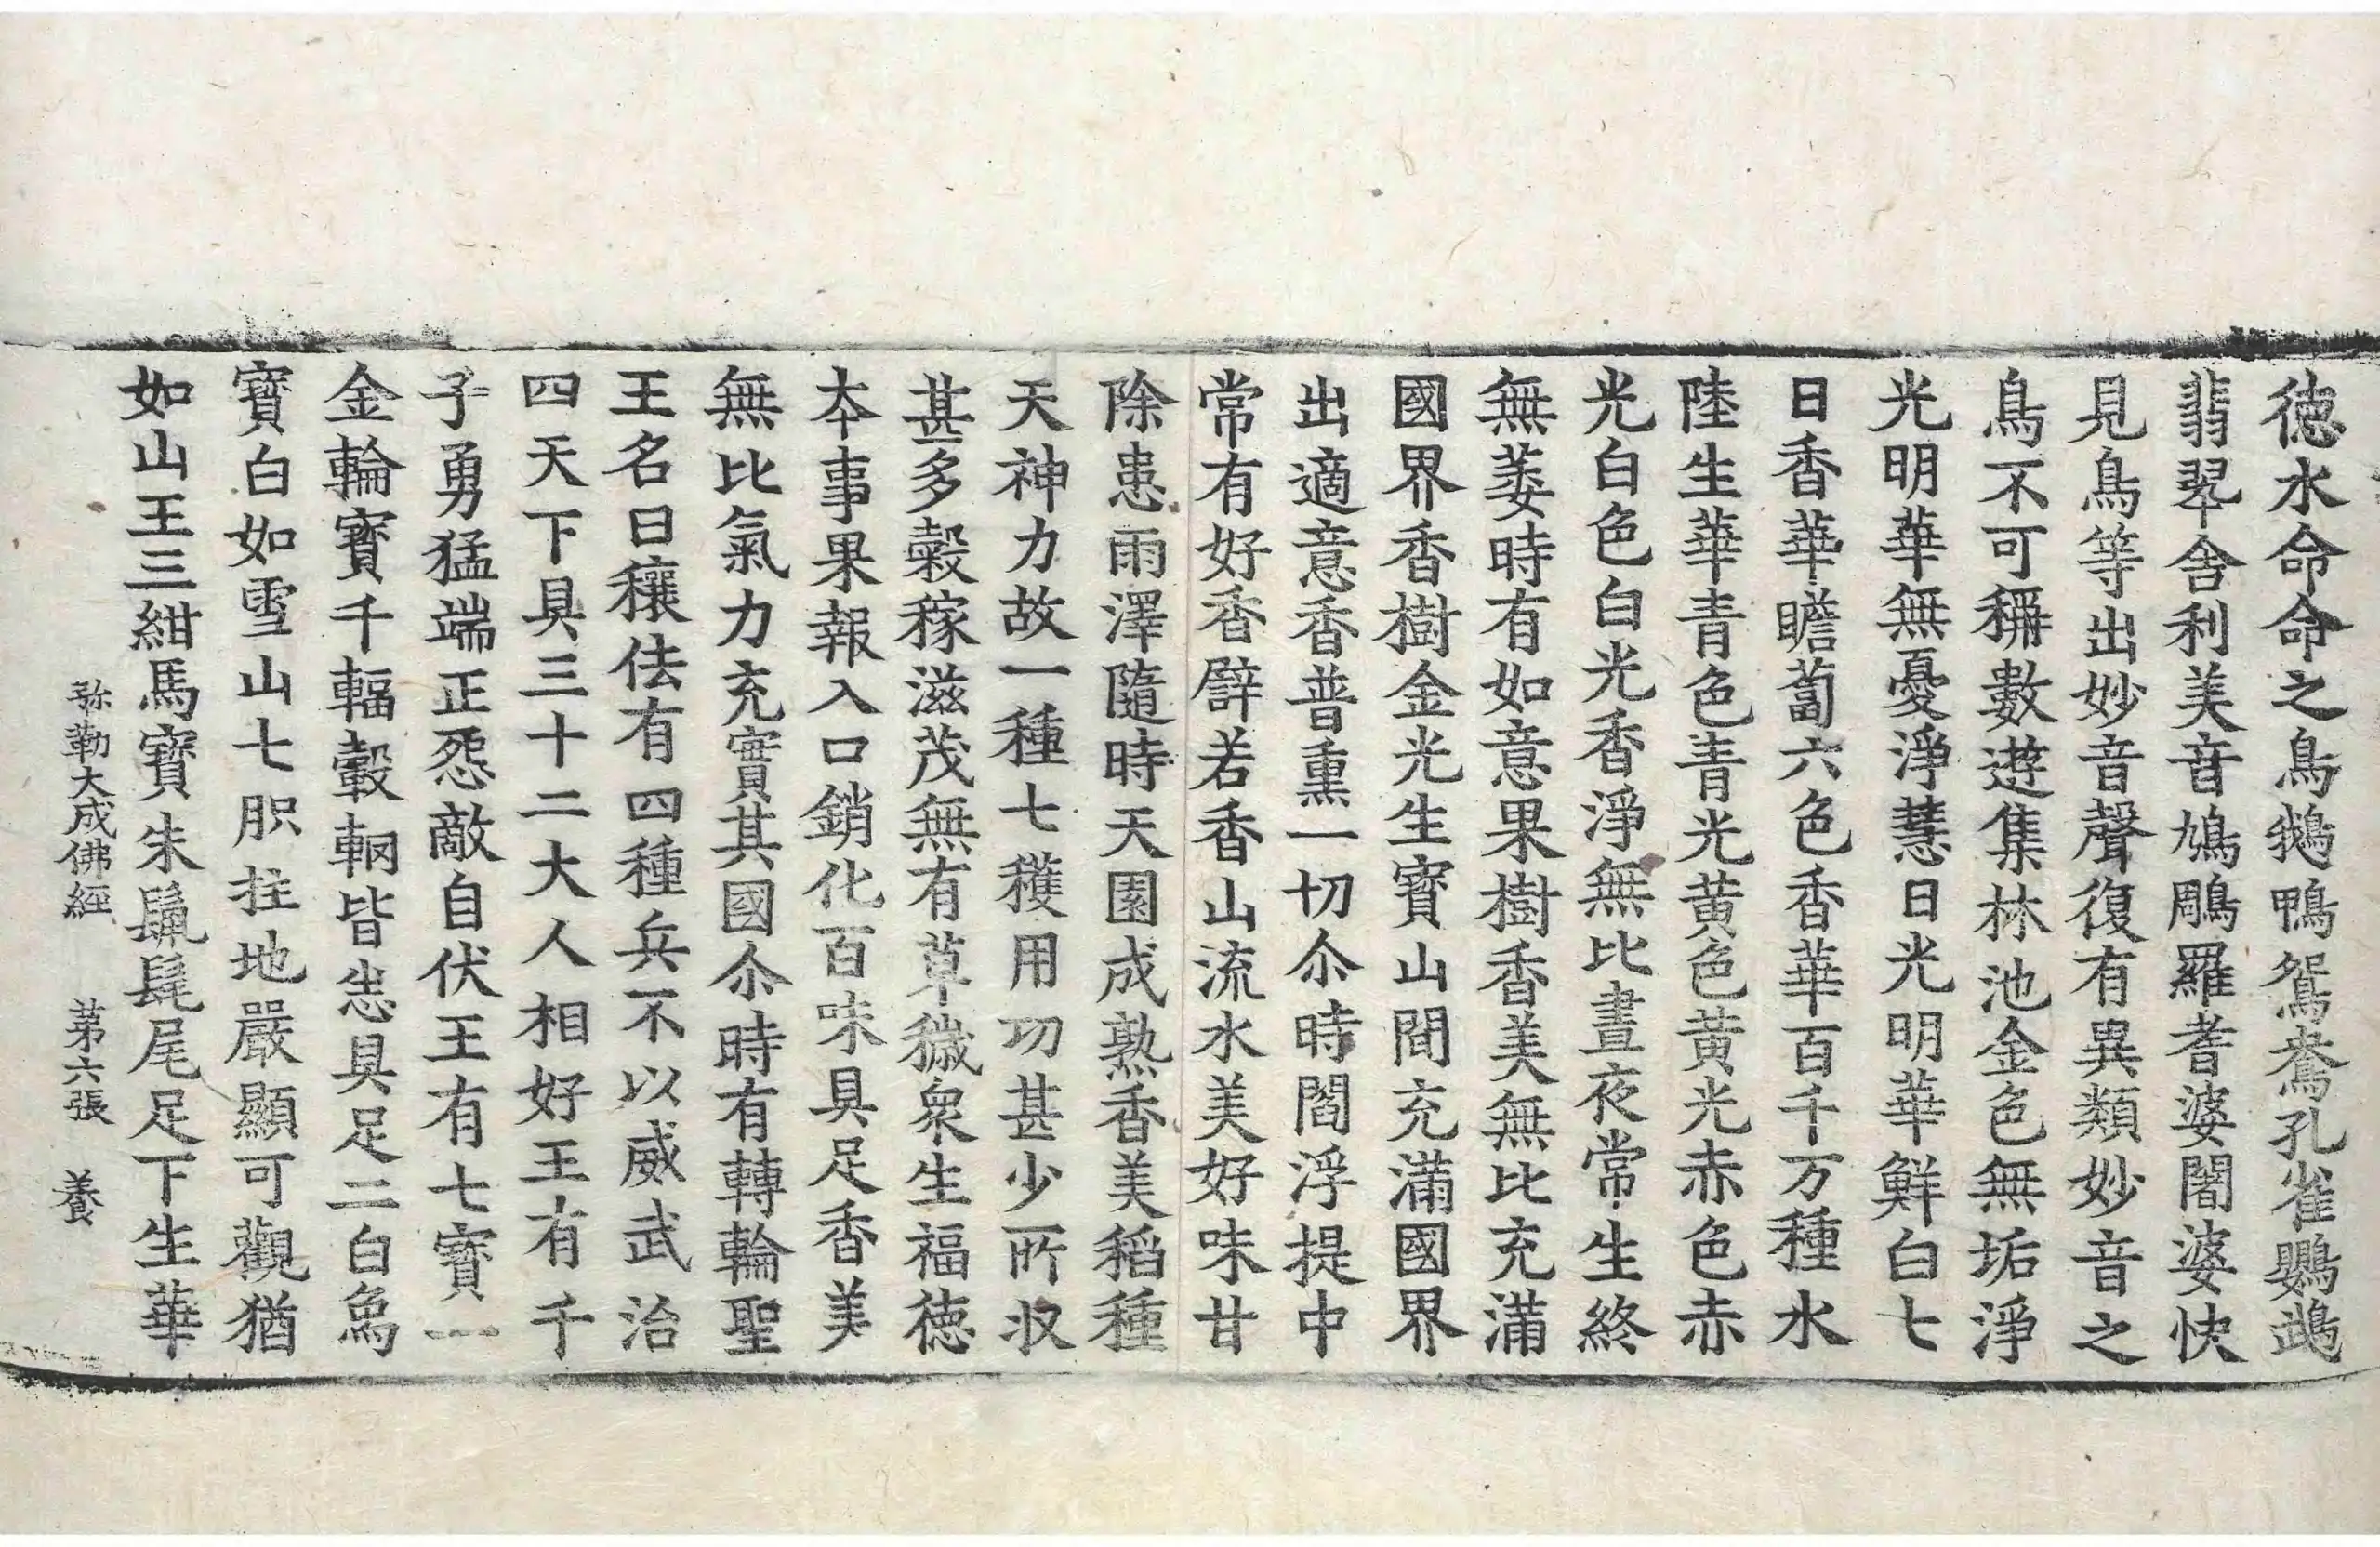 德水命命之鳥鵝鴨鴛鴦孔雀鸚鵡
翡翠舍利美音鳩鵰羅耆婆闍婆快
見鳥等出妙音聲復有異類妙音之
鳥不可稱數遊集林池金色無垢淨
光明華無憂淨慧日光明華鮮白七
日香華瞻蔔六色香華百千万種水
陸生華青色青光黃色黃光赤色赤
光白色白光香淨無比晝夜常生終
無萎時有如意果樹香美無比充滿
國界香樹金光生寶山間充滿國界
出適意香普熏一切尒時閻浮提中
常有好香譬若香山流水美好味甘
除患雨澤隨時天園成熟香美稻種
天神力故一種七穫用功甚少所收
甚多穀稼滋茂無有草穢衆生福德
本事果報入口銷化百味具足香美
無比氣力充實其國尒時有轉輪聖
王名曰穰佉有四種兵不以威武治
四天下具三十二大人相好王有千
子勇猛端正怨敵自伏王有七寶一
金輪寶千輻轂輞皆悉具足二白象
寶白如雪山七胑拄地嚴顯可觀猶
如山王三紺馬寶朱鬣髦尾足下生華
弥勒大成佛經 苐六張 養